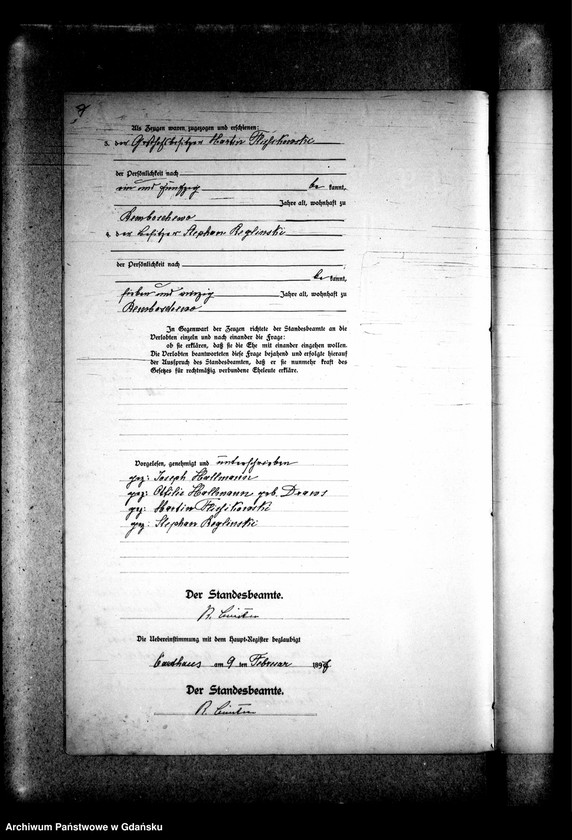 Als Zeugen waren zugezogen und erschienen:
3. der Gasthofbesitzer Martin
der Persönlichkeit nach
ein und fünfzig be kannt,
Jahre alt, wohnhaft zu
Remboschewo
4. der Besitzer Stephan Reglinski
der Persönlichkeit nach
be kannt,
sieben und vierzig Jahre alt, wohnhaft zu
Remboschewo
In Gegenwart der Zeugen richtete der Standesbeamte an die
Verlobten einzeln und nach einander die Frage:
ob sie erklären, daß sie die Ehe mit einander eingehen wollen.
Die Verlobten beantworteten diese Frage bejahend und erfolgte hierauf
der Ausspruch des Standesbeamten, daß er sie nunmehr kraft des
Gesetzes für rechtmäßig verbundene Eheleute erkläre.
Vorgelesen, genehmigt und unterschrieben
gez: Joseph Hallmann
gez: Ottilie Hallmann geb. Draws
gez: Martin
gez: Stephan Reglinski
Der Standesbeamte.
Die Uebereinstimmung mit dem Haupt-Register beglaubigt
Carthaus am 9 ten Februar 189
Der Standesbeamte.
Archiwum Państwowe w Gdańsku